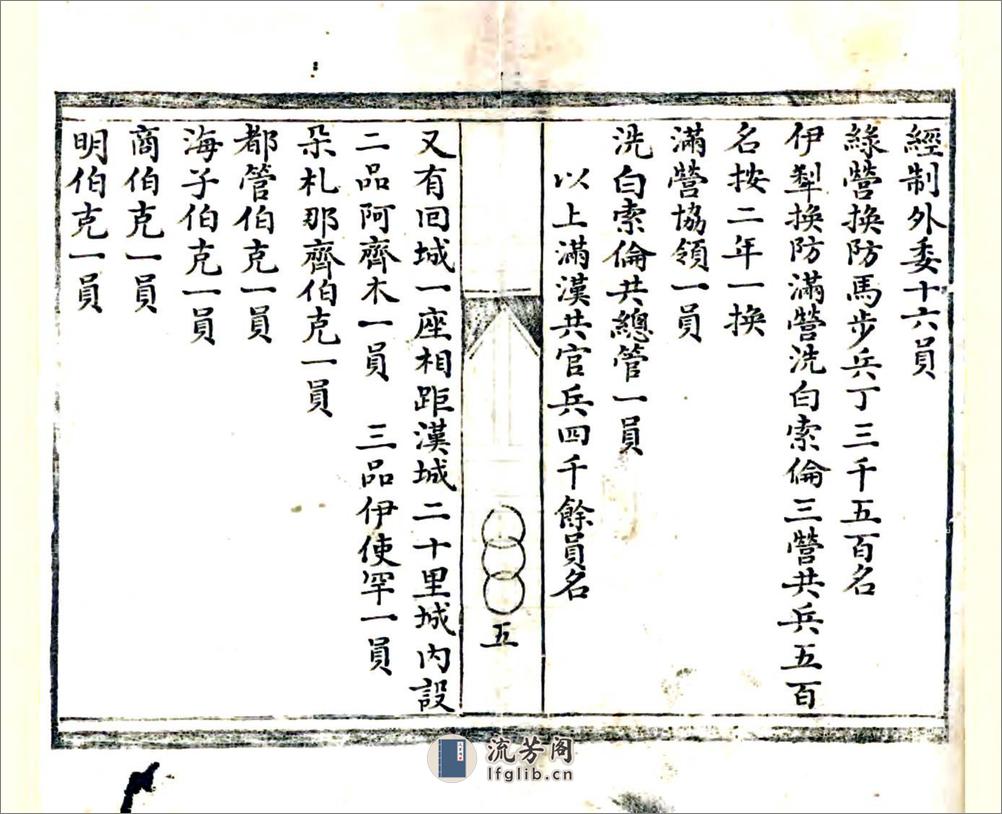 經制外委十六員
綠營換防馬步兵丁三千五百名
伊犂換防滿營洗白索倫三營共兵五百
名按二年一換
滿營協領一員
洗白索倫共總管一員
以上滿漢共官兵四千餘員名
五
又有回城一座相距漢城二十里城内設
二品阿齊木一員 三品伊使罕一員
朵札那齊伯克一員
都管伯克一員
海子伯克一員
商伯克一員
明伯克一員
流芳阁
lfglib.cn